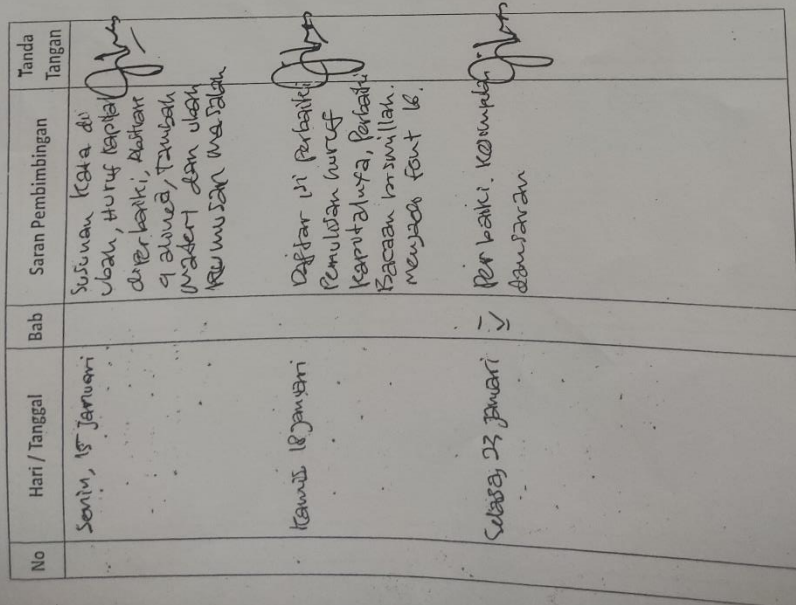 No
Hari / Tanggal
Bab
Saran Pembimbingan
Tanda
Tangan
Senin, 15 Januari
Susunan kata di
ubah, Huruf kapital
diperbaiki,
9 alinea, Tambah
materi dan ubah
Rumusan masalah
Kamis 18 Januari
Daftar isi perbaiki
Penulisan huruf
kapitalnya, Perbaiki
Bacaan bismillah.
menjadi font 16.
Selasa, 23 Januari
IV
Perbaiki. Kesimpulan
dan saran